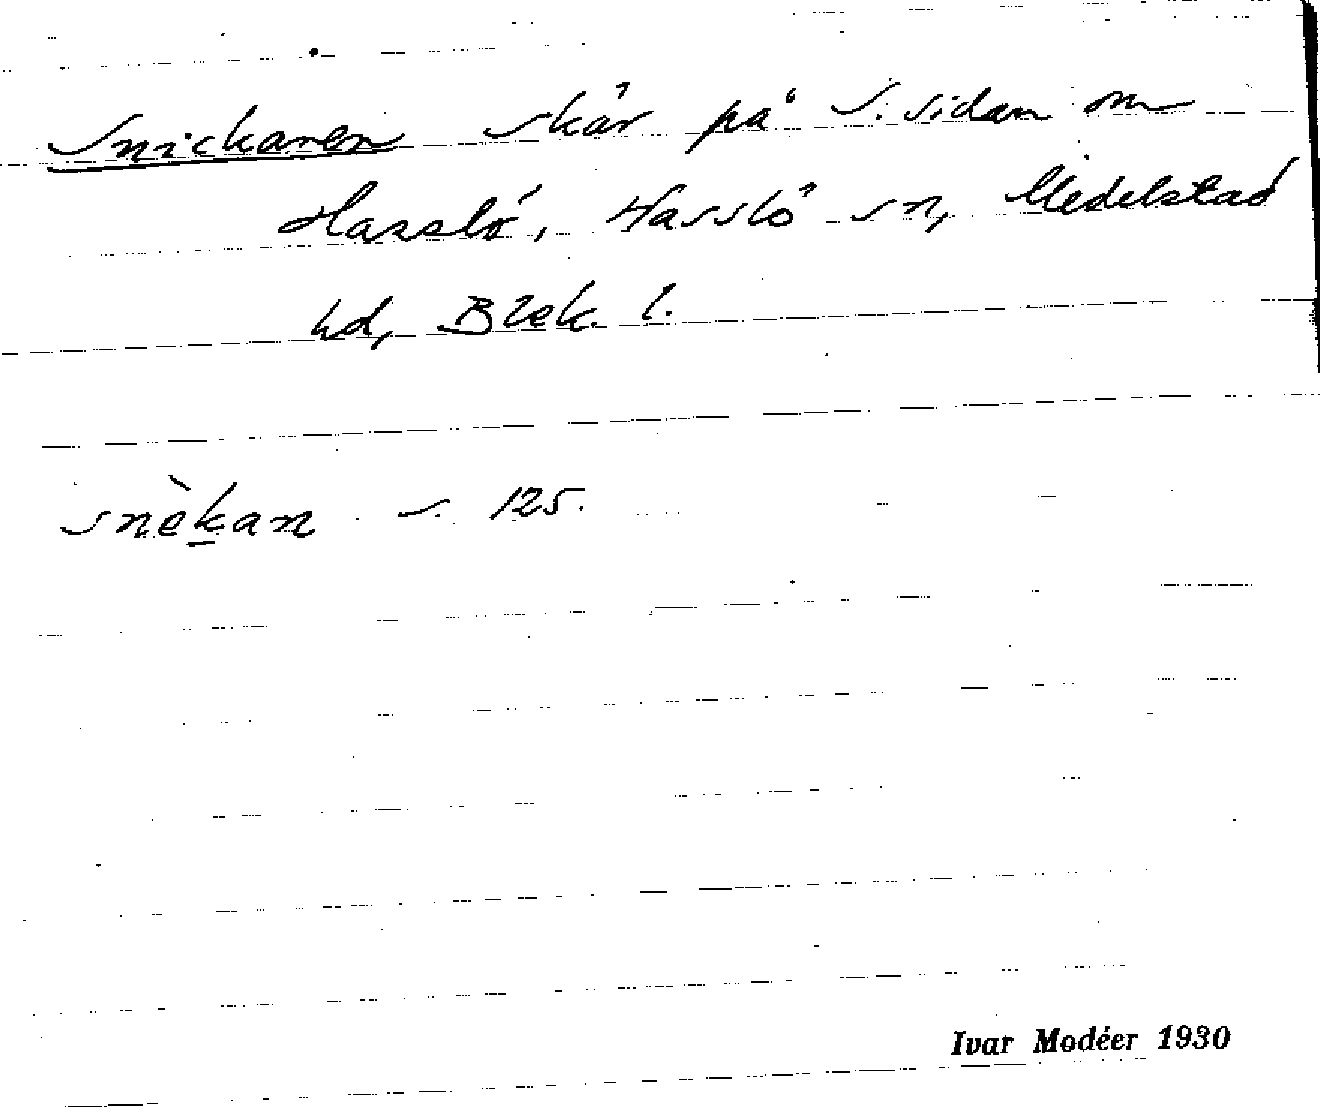 Snickaren skär på S. sidan om
Hasslö, Hasslö sn, Medelstad
hd, Blek. l.
snèkan s. 125.
Ivar Modéer 1930